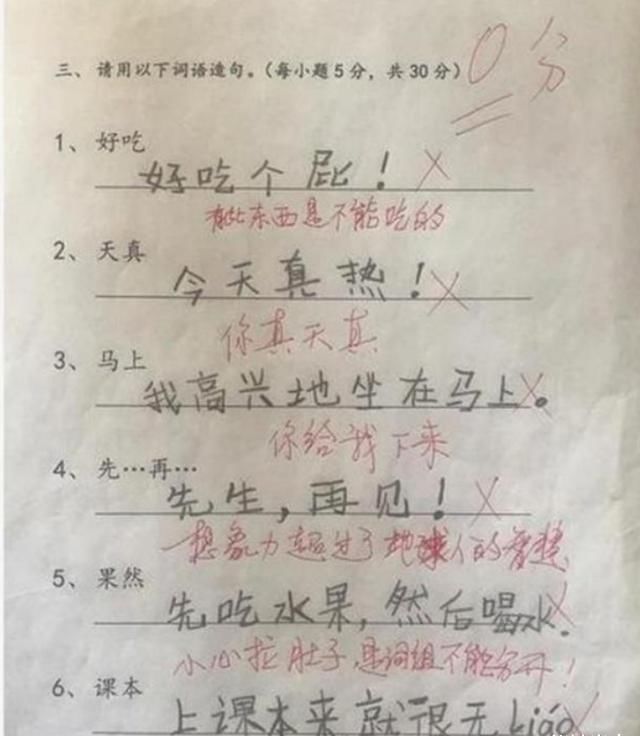 三、请用以下词语造句。（每小题5分，共30分）0分
1、好吃
好吃个屁！×
有些东西是不能吃的
2、天真
今天真热！×
你真天真
3、马上
我高兴地坐在马上。×
你给我下来
4、先…再…
先生，再见！×
想象力超过了地球人的智慧
5、果然
先吃水果，然后喝水.×
小心拉肚子，是词组不能分开！
6、课本
上课本来就很无liáo×